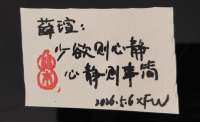 薛瑄：
少欲则心静
心静则事简
2026.5.6 XFW